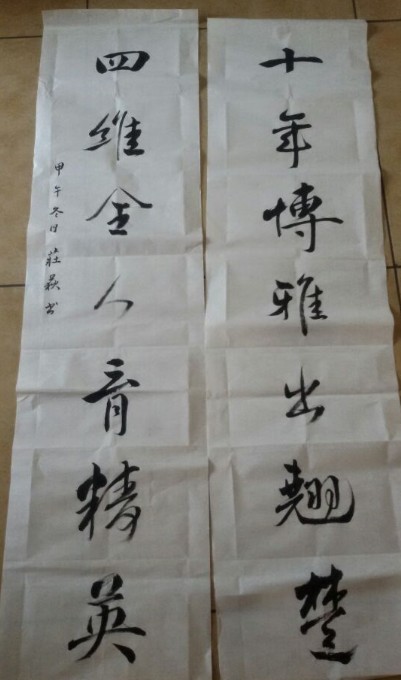 十年博雅出翘楚
四维全人育精英
甲午冬日 莊嶽书